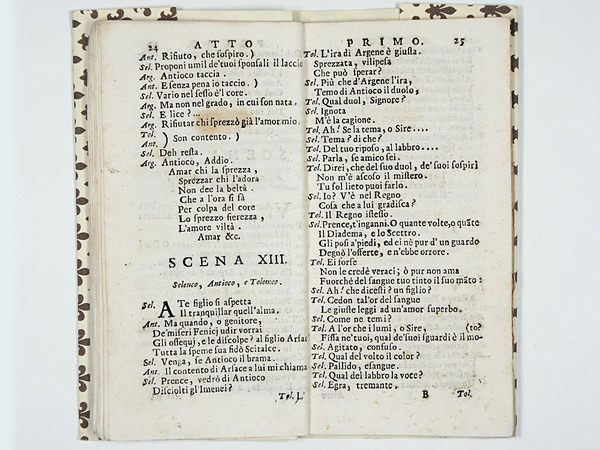 24 ATTO
Ant. Rifiuto, che sospiro. )
Sel. Proponi umil de' tuoi sponsali il laccio
Arg. Antioco taccia.
Ant. E senza pena io taccio. )
Sel. Vario nel sesso è'l core.
Arg. Ma non nel grado, in cui son nata.
Sel. E lice? ...
Arg. Rifiutar chi sprezzò già l'amor mio.
Tol. )
Ant. ) Son contento. )
Sel. Deh resta.
Arg. Antioco, Addio.
Amar chi la sprezza,
Sprezzar chi l'adora
Non dee la beltà.
Che a l'ora si fà
Per colpa del core
Lo sprezzo fierezza,
L'amore viltà.
Amar &c.
SCENA XIII.
Seleuco, Antioco, e Tolomeo.
Sel. A Te figlio si aspetta
Il tranquillar quell'alma.
Ant. Ma quando, o genitore,
De' miseri Fenicj udir vorrai
Gli ossequj, e le discolpe? al figlio Arsace
Tutta la speme sua fidò Scitalce.
Sel. Venga, se Antioco il brama.
Ant. Il contento di Arsace a lui mi chiama
Sel. Prence, vedrò di Antioco
Disciolti gl'Imenei?
Tol. L'
PRIMO. 25
Tol. L'ira di Argene è giusta.
Sprezzata, vilipesa
Che può sperar?
Sel. Più che d'Argene l'ira,
Temo di Antioco il duolo,
Tol. Qual duol, Signore?
Sel. Ignota
M'è la cagione.
Tol. Ah! Se la tema, o Sire ....
Sel. Tema? di che?
Tol. Del tuo riposo, al labbro....
Sel. Parla, se amico sei.
Tol. Direi, che del suo duol, de' suoi sospiri
Non m'è ascoso il mistero.
Tu sol lieto puoi farlo.
Sel. Io? V'è nel Regno
Cosa che a lui gradisca?
Tol. Il Regno istesso.
Sel. Prence, t'inganni. O quante volte, o quãte
Il Diadema, e lo Scettro.
Gli posi a' piedi, ed ei nè pur d'un guardo
Degnò l'offerte, e n'ebbe orrore.
Tol. Ei forse
Non le credè veraci; ò pur non ama
Fuorchè del sangue tuo tinto il suo māto:
Sel. Ah! che dicesti? un figlio?
Tol. Cedon tal'or del sangue
Le giuste leggi ad un'amor superbo.
Sel. Come ne temi?
Tol. A l'or che i lumi, o Sire, (to?
Fissa ne' tuoi, qual de' suoi sguardi è il mo-
Sel. Agitato, confuso.
Tol. Qual del volto il color?
Sel. Pallido, esangue.
Tol. Qual del labbro la voce?
Sel. Egra, tremante.
B Tol.